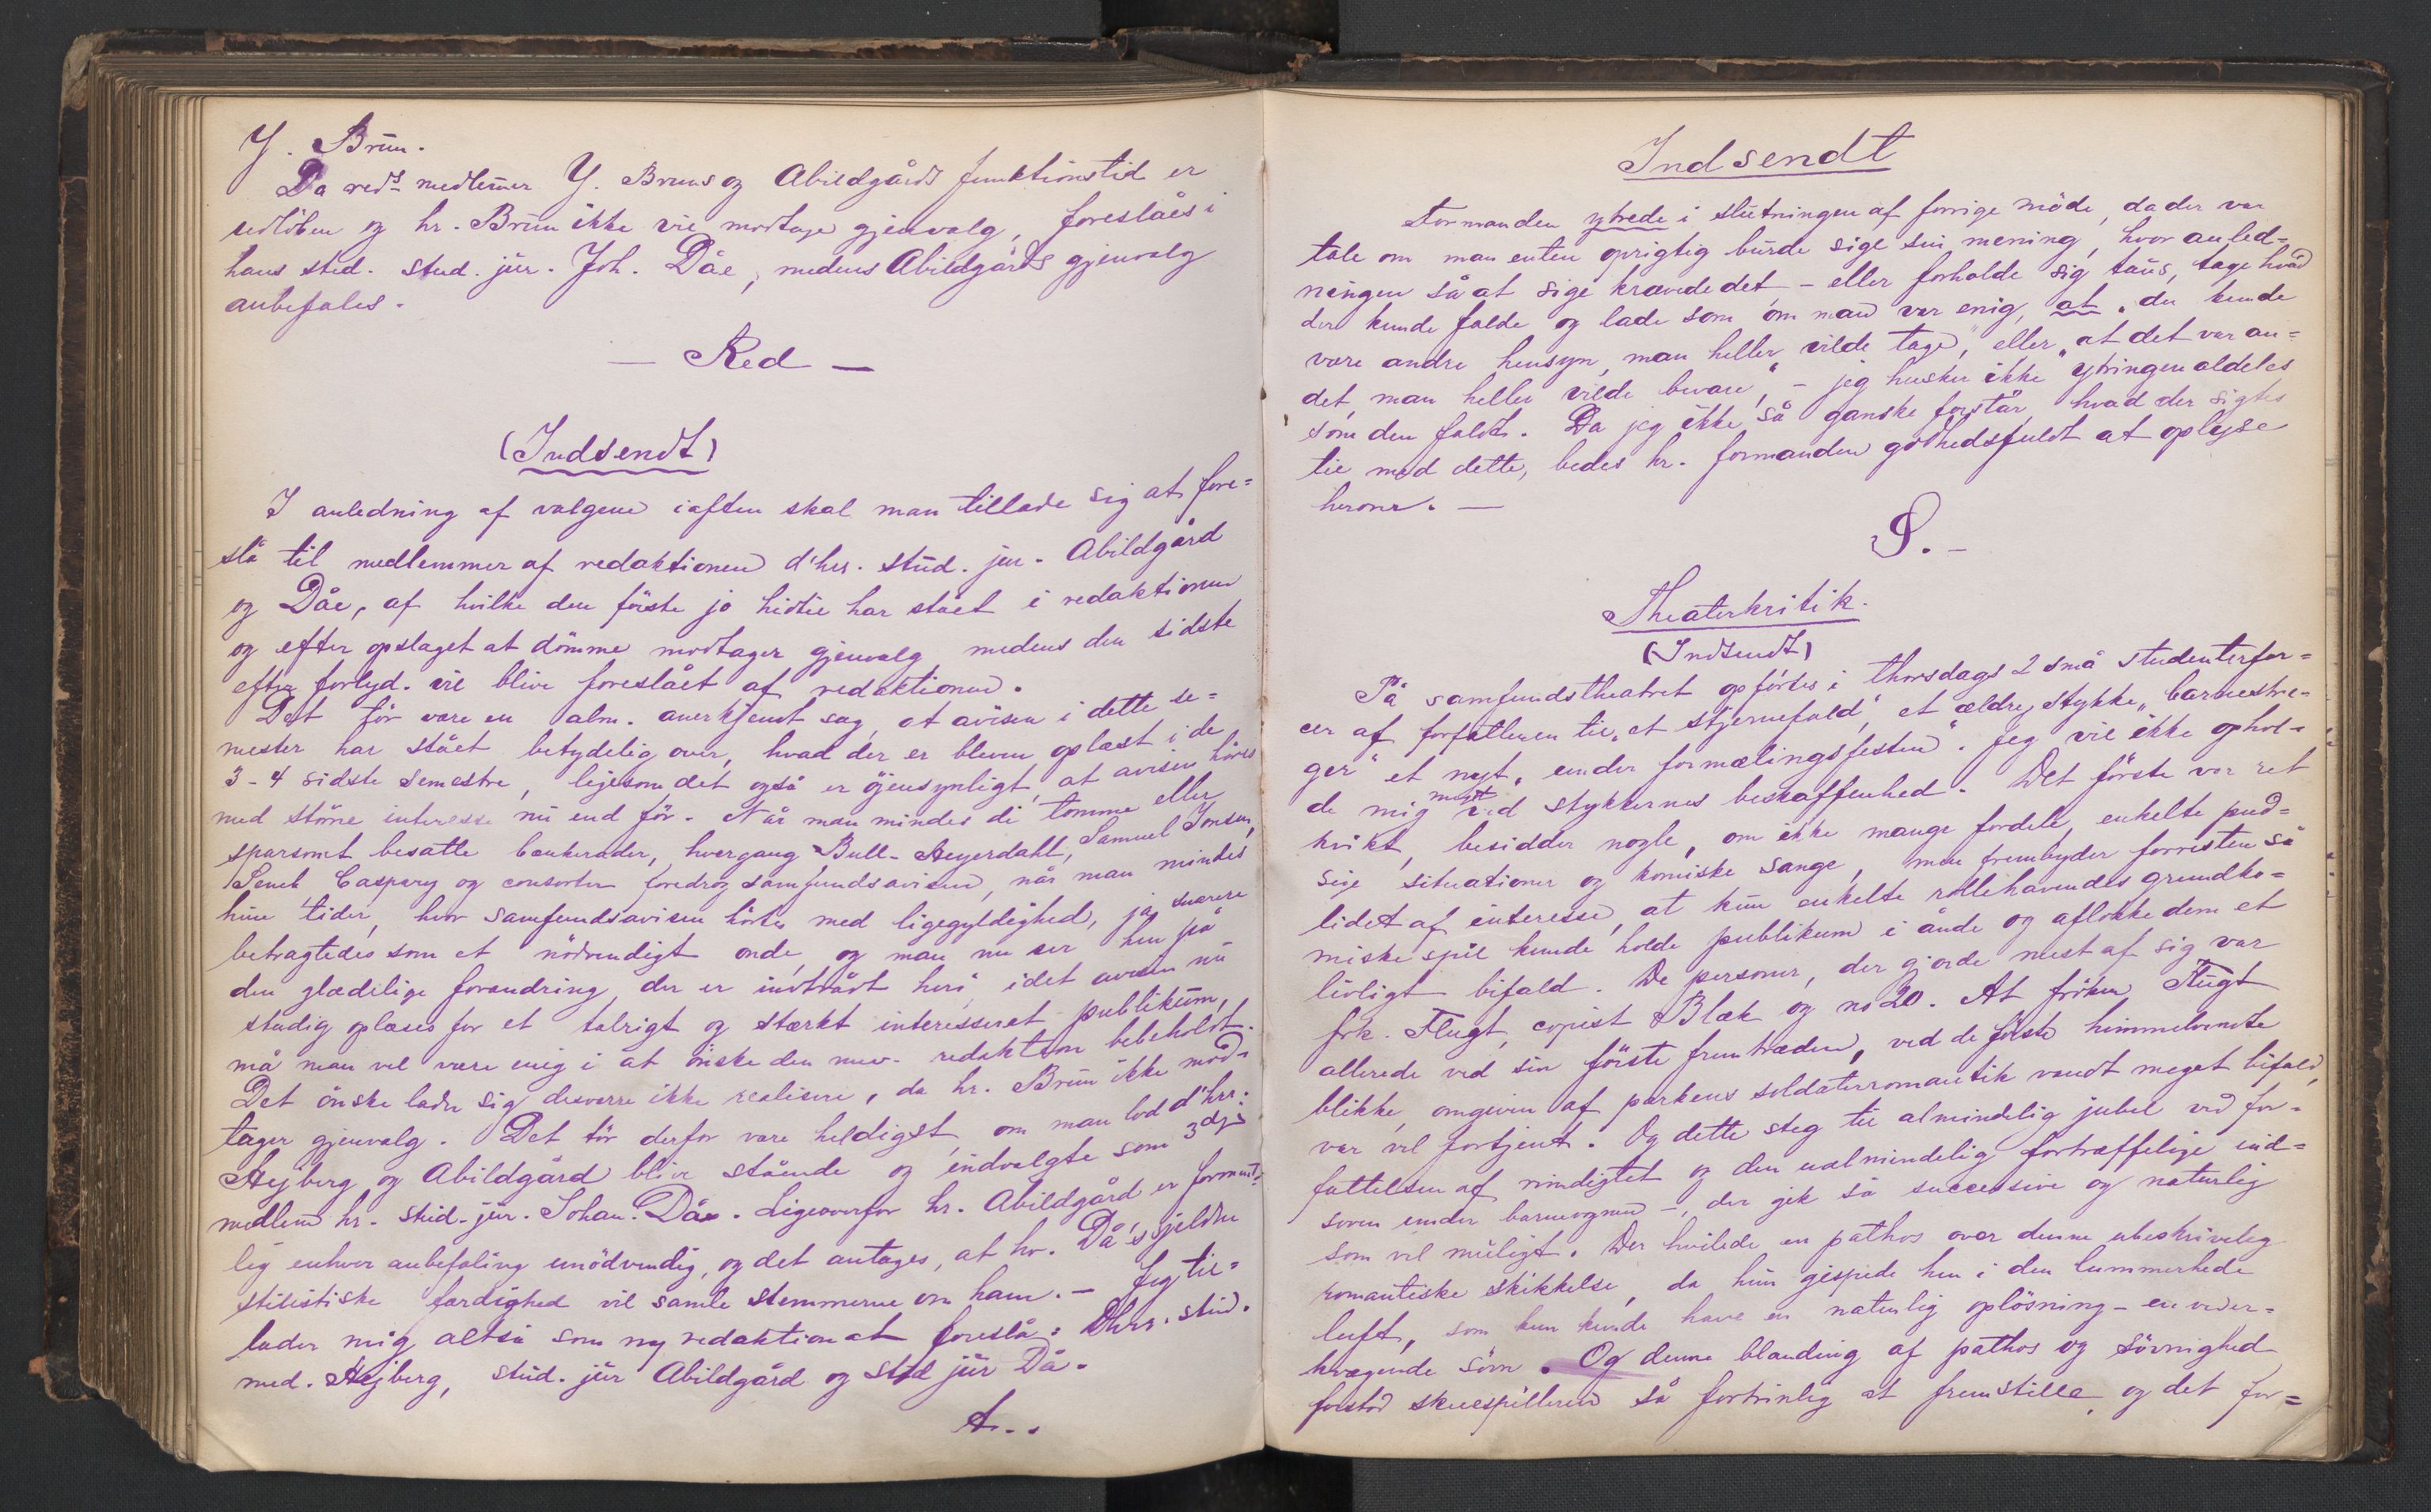 Y. Brun.
Da reds medlemer Y. Bruns og Abildgårds funktionstid er
udlöben og hr. Brun ikke vil modtage gjenvalg, foreslåes i
hans sted. stud. jur. Joh. Dåe, medens Abildgårds gjenvalg
anbefales.
— Red —
(Indsendt)
I anledning af valgene iaften skal man tillade sig at fore=
slå til medlemmer af redaktionen d'hrr. stud. jur. Abildgård
og Dåe, af hvilke den förste jo hidtil har stået i redaktionen
og efter opslaget at dömme modtager gjenvalg medens den sidste
efter forlyd. vil blive foreslået af redaktionen.
Det tör være en alm. anerkjent sag, at avisen i dette se=
mester har stået betydelig over, hvad der er bleven oplæst i de
3-4 sidste semestre, ligesom det også er öjensynligt, at avisen höres
med större interesse nu end för. Når man mindes de tomme eller
sparsomt besatte bænkerader, hvergang Bull-Aeyerdahl, Samuel Jonsen,
Caspary og consorter foredrog samfundsavisen, når man mindes
hine tider, hvor samfundsavisen hörtes med ligegyldighed, ja snarere
betragtedes som et nödvendigt onde, og man nu ser hen på
den glædelige forandring, der er indtrådt heri, idet avisen nu
stadig oplæses for et talrigt og stærkt interesseret publikum,
må man vel være enig i at önske den nuv. redaktion bebeholdt.
Det önske lader sig desværre ikke realisere, da hr. Brun ikke mod=
tager gjenvalg. Det tör derfor være heldigst, om man lod d'hrr.
Hejberg og Abildgård blive stående og indvalgte som 3dje
medlem hr. stud. jur. Johan. Dåe. Ligeoverfor hr. Abildgård er forment=
lig enhver anbefaling unödvendig, og det antages, at hr. Då's sjeldne
stilistiske færdighed vil samle stemmerne om ham. — Jeg til=
lader mig altså som ny redaktion at foreslå: Dhrr. stud.
med. Hejberg, stud. jur Abildgård og std jur Då.
A..
Indsendt
Formanden ytrede i slutningen af forrige möde, da der var
tale om man enten oprigtig burde sige sin mening, hvor anled=
ningen så at sige krævede det — eller forholde sig taus, tage hvad
der kunde falde og lade som om man var enig, at „der kunde
være andre hensyn, man heller vilde tage", eller „at det var an=
det, man heller vilde bevare", — jeg husker ikke ytringen aldeles
som den faldt. Da jeg ikke så ganske forstår, hvad der sigtes
til med dette, bedes hr. formanden godhedsfuldt at oplyse
herom. —
S. —
Theaterkritik.
(Indsendt)
På samfundstheatret opförtes i thorsdags 2 små studenterfar=
cer af forfatteren til „et stjernefald", et ældre stykke „barnestre=
ger" et nyt „under formælingsfesten". Jeg vil ikke ophol=
de mig meget ved stykkernes beskaffenhed. Det förste var ret
kvikt, besidder nogle, om ikke mange fordele, enkelte pud=
sige situationer og komiske sange, men frembyder forresten så
lidet af interesse, at kun enkelte rollehavendes grundko=
miske spil kunde holde publikum i ånde og aflokke dem et
livligt bifald. De personer, der gjorde mest af sig var
frk. Flugt, copist Blæk og no 20. At fröken Flugt
allerede ved sin förste fremtræden, ved de förste himmelvendte
blikke, omgiven af parkens soldaterromantik vandt meget bifald,
var vel fortjent. Og dette steg til almindelig jubel ved for=
fattelsen af mindigtet og den ualmindelig fortræffelige ind=
soven under barnevognen —, der gik så successive og naturlig
som vel muligt. Der hvilede en pathos over denne ubeskrivelig
romantiske skikkelse, da hun gispede hen i den lummerhede
luft, som kun kunde have en naturlig oplösning — en veder=
kvægende sövn. Og denne blanding af pathos og sövnighed
forstod skuespilleren så fortrinlig at fremstille, og det for=